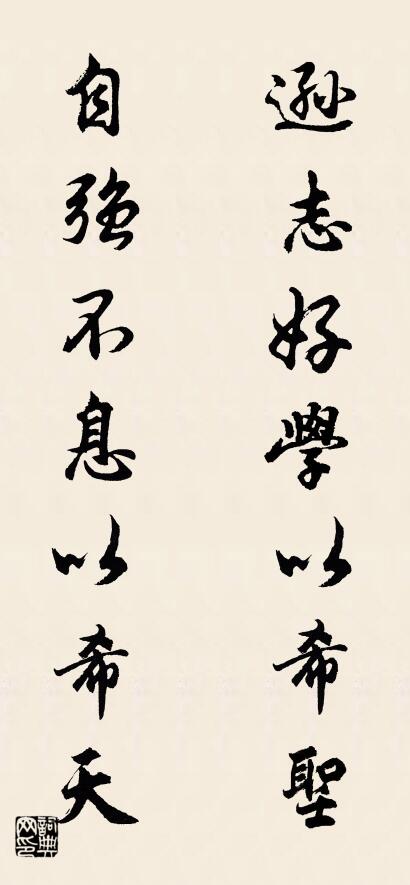 遜志好學以希聖
自強不息以希天
詞典网印